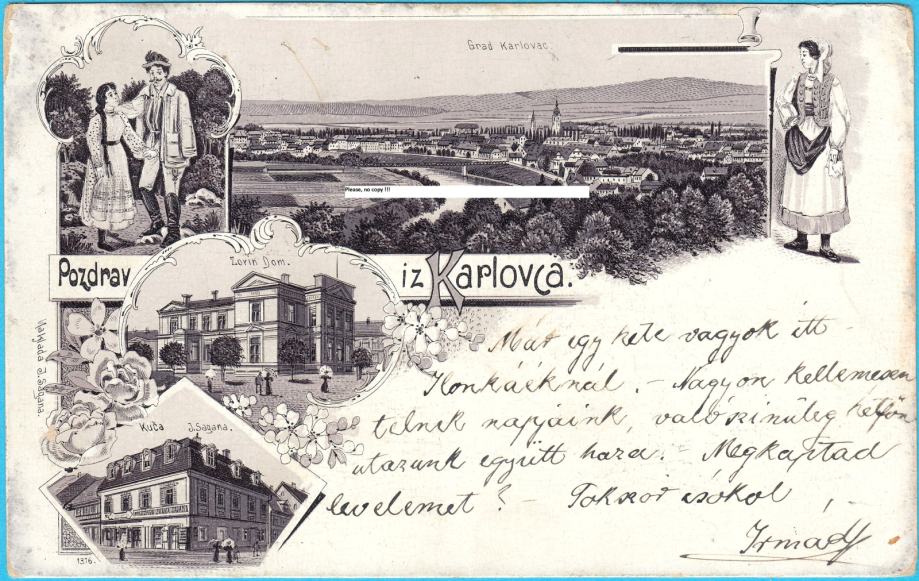 Grad Karlovac.
Please, no copy !!!
Zorin Dom.
Pozdrav iz Karlovca.
Naklada J. Sagana.
Kuća J. Sagana.
1316.
Már egy hete vagyok itt
Ilonkáéknál. – Nagyon kellemesen
telnek napjaink, valószinüleg hétfőn
utazunk együtt haza. – Megkaptad
levelemet? – Sokszor csókol
Irmád